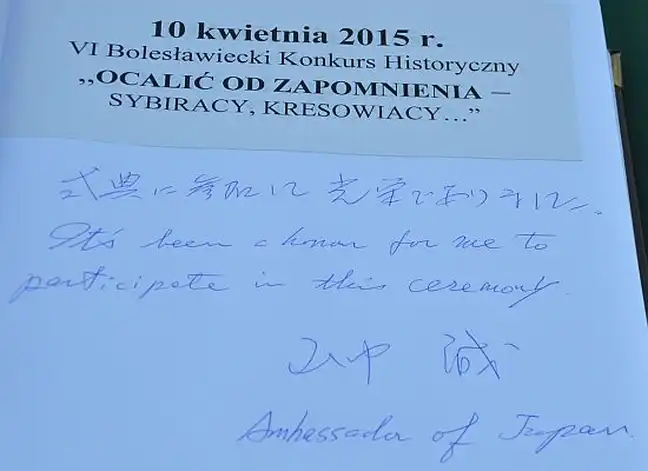 10 kwietnia 2015 r.
VI Bolesławiecki Konkurs Historyczny
„OCALIĆ OD ZAPOMNIENIA –
SYBIRACY, KRESOWIACY...”
式典に参加して光栄でありました。
It's been a honor for me to
participate in this ceremony.
山中 誠
Ambassador of Japan